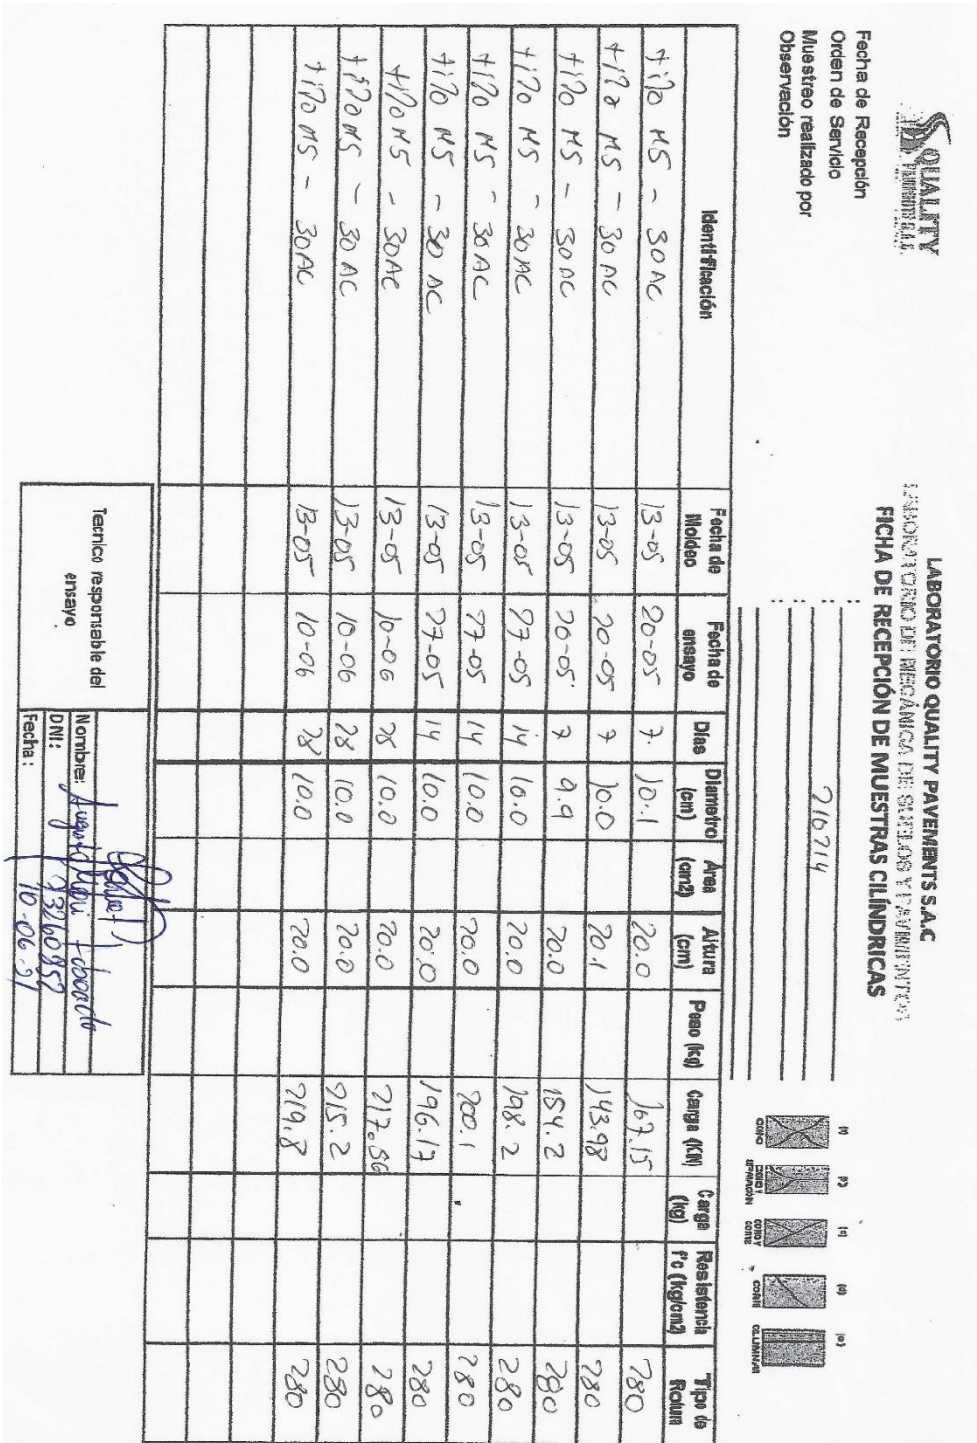 QUALITY
PAVEMENTS S.A.C.
LABORATORIO QUALITY PAVEMENTS S.A.C
LABORATORIO DE MECÁNICA DE SUELOS Y PAVIMENTOS
FICHA DE RECEPCIÓN DE MUESTRAS CILÍNDRICAS
Fecha de Recepción :
Orden de Servicio : 216214
Muestreo realizado por :
Observación :
(a) (b) (c) (d) (e)
CONO CONO Y CORTE CORTE COLUMNAR
Identificación Fecha de Moldeo Fecha de ensayo Dias Diametro (cm) Área (cm2) Altura (cm) Peso (kg) Carga (KN) Carga (kg) Resistencia f'c (kg/cm2) Tipo de Rotura
tipo MS - 30 AC 13-05 20-05 7. 10.1 20.0 167.15 280
tipo MS - 30 AC 13-05 20-05 7 10.0 20.1 143.98 280
tipo MS - 30 AC 13-05 20-05 7 9.9 20.0 154.2 280
tipo MS - 30 AC 13-05 27-05 14 10.0 20.0 198.2 280
tipo MS - 30 AC 13-05 27-05 14 10.0 20.0 200.1 280
tipo MS - 30 AC 13-05 27-05 14 10.0 20.0 196.17 280
tipo MS - 30 AC 13-05 10-06 28 10.0 20.0 217.56 280
tipo MS - 30 AC 13-05 10-06 28 10.0 20.0 215.2 280
tipo MS - 30 AC 13-05 10-06 28 10.0 20.0 219.8 280
Tecnico responsable del ensayo
Nombre: Augusto
DNI: 03260852
Fecha: 10-06-21